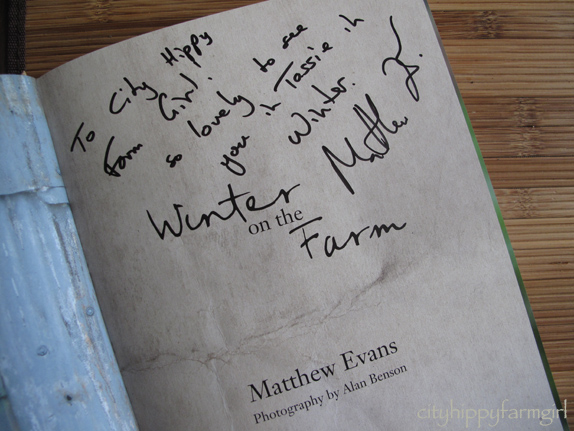 To City Hippy
Farm Girl.
so lovely to see
you in Tassie in
Winter.
Matthew
Winter
on the
Farm
Matthew Evans
Photography by Alan Benson
cityhippyfarmgirl